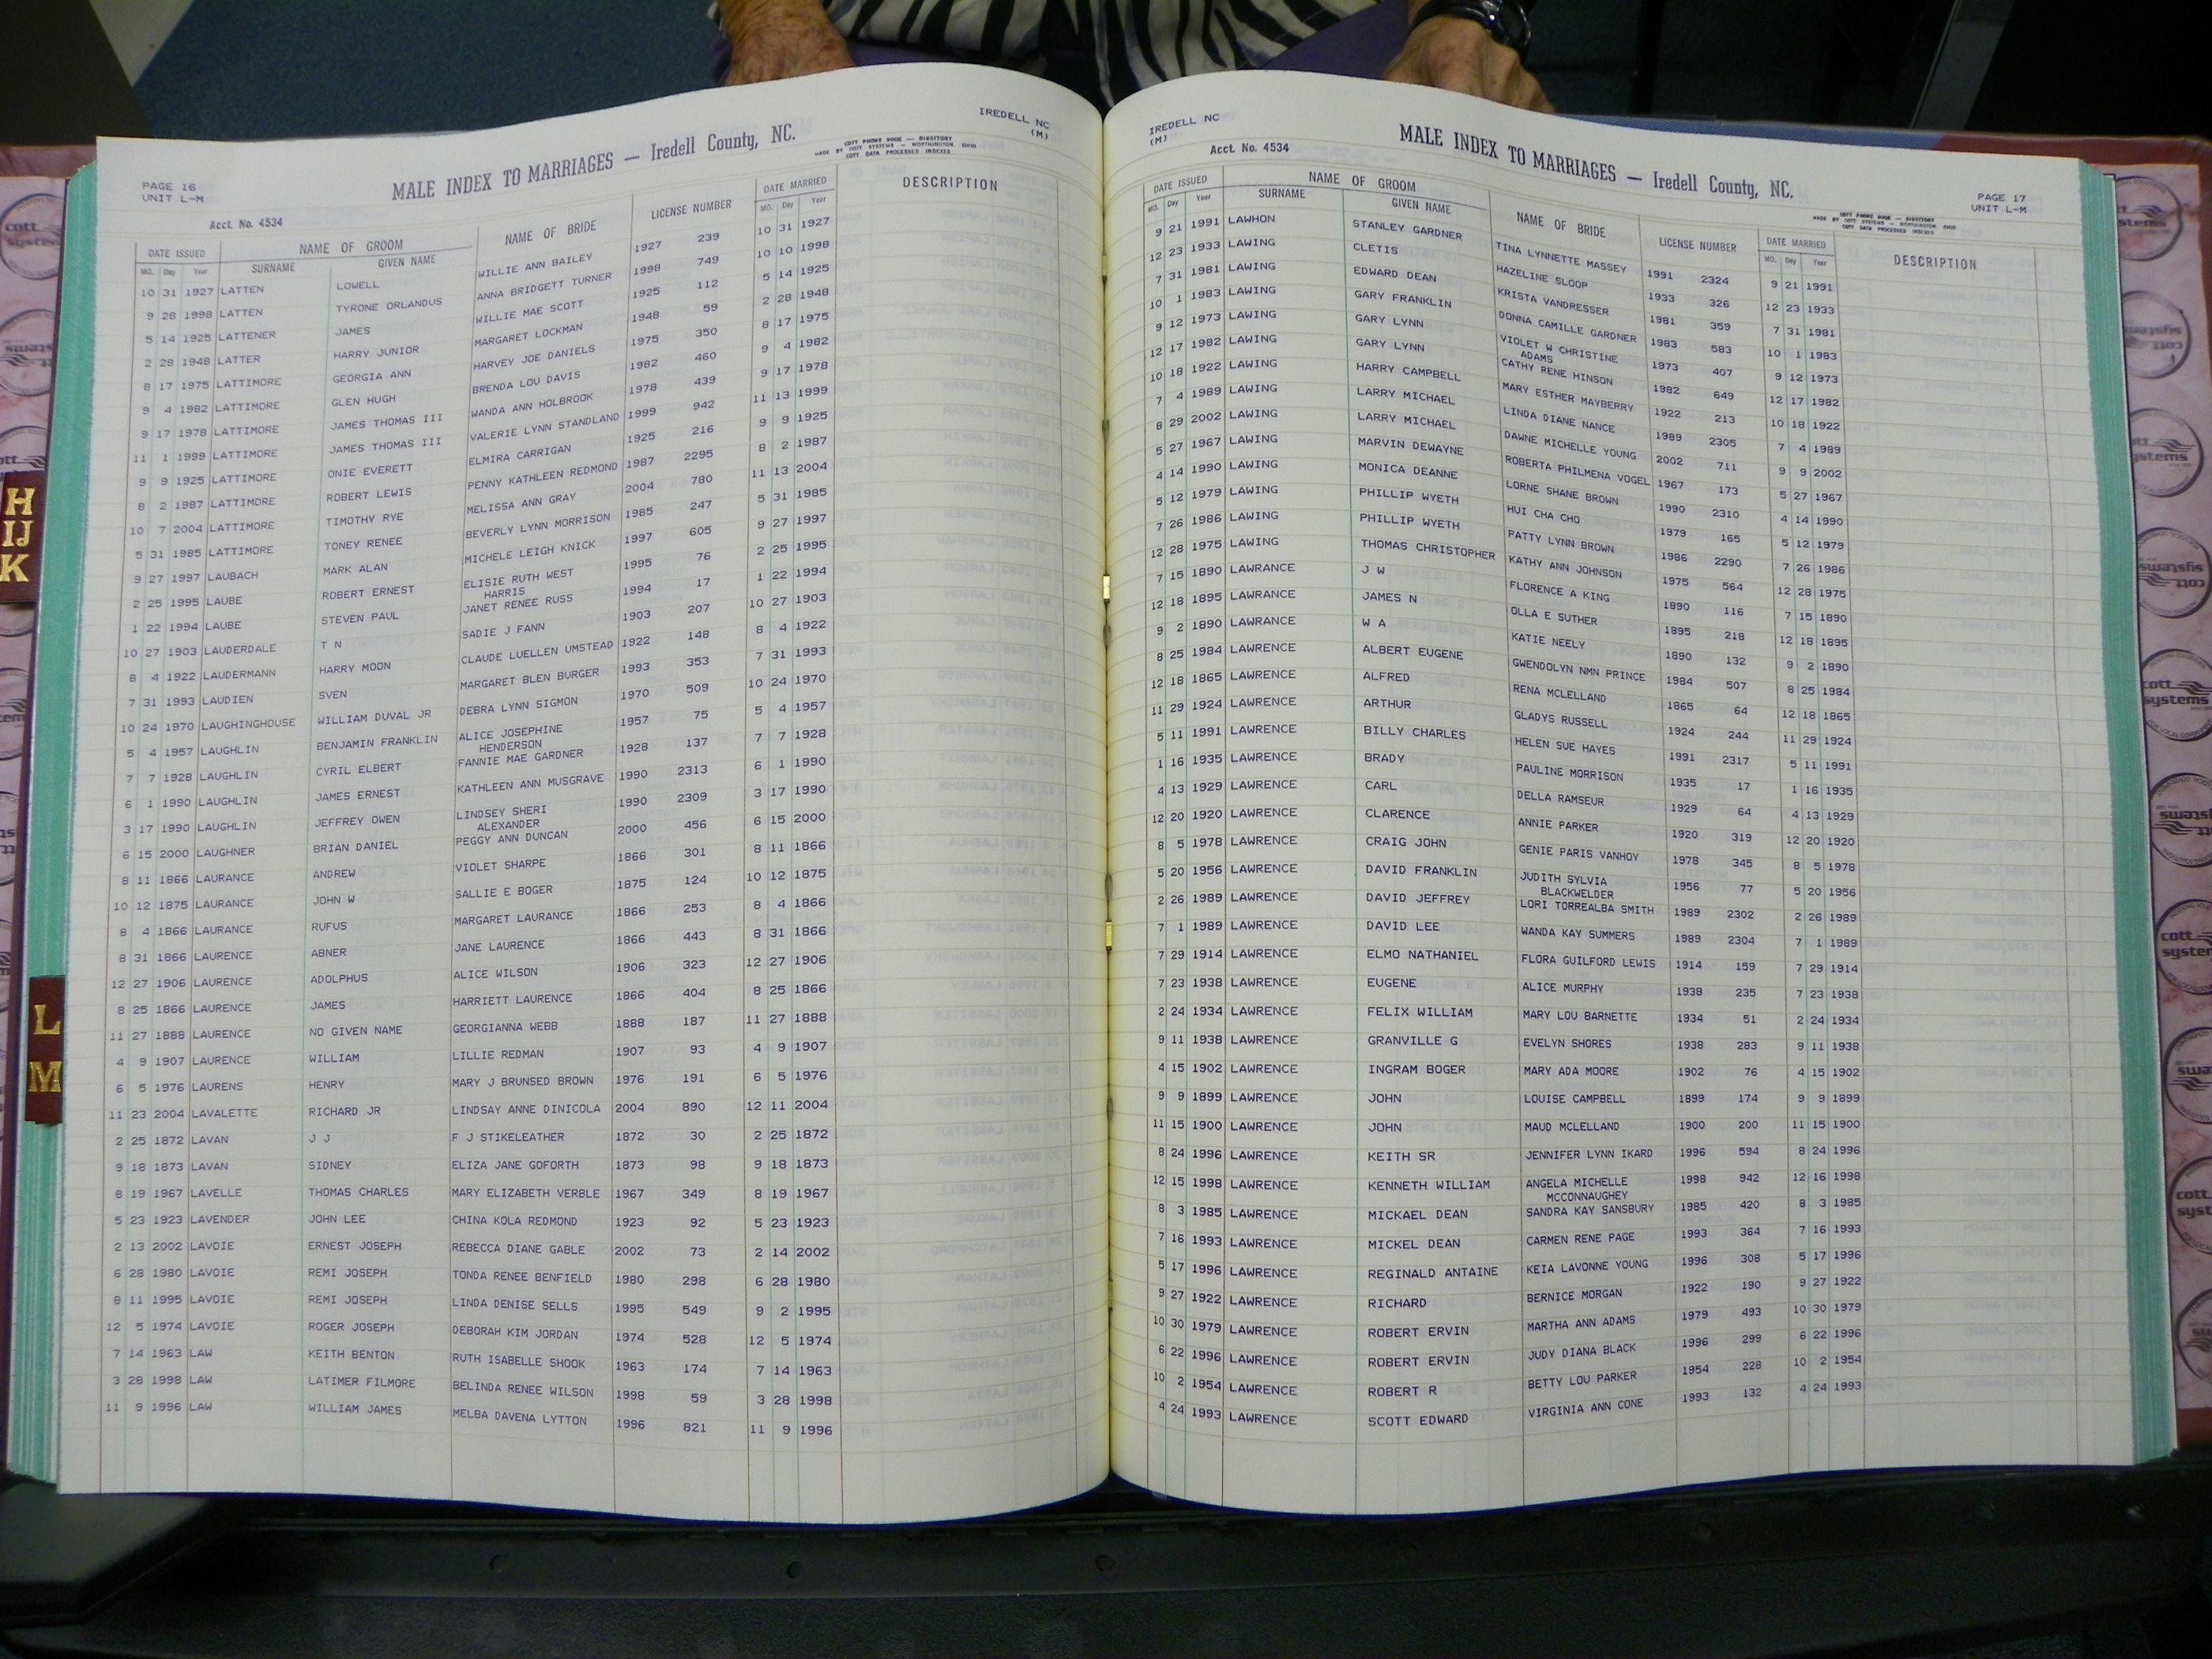 IREDELL NC
(M)
MALE INDEX TO MARRIAGES — Iredell County, NC.
COTT PHONE BOOK — DIRECTORY
MADE BY COTT SYSTEMS — WORTHINGTON, OHIO
COTT DATA PROCESSED INDEXES
PAGE 16
UNIT L-M
Acct. No. 4534
DATE ISSUED NAME OF GROOM NAME OF BRIDE LICENSE NUMBER DATE MARRIED DESCRIPTION
MO. Day Year SURNAME GIVEN NAME MO. Day Year
10 31 1927 LATTEN LOWELL WILLIE ANN BAILEY 1927 239 10 31 1927
9 28 1998 LATTEN TYRONE ORLANDUS ANNA BRIDGETT TURNER 1998 749 10 10 1998
5 14 1925 LATTENER JAMES WILLIE MAE SCOTT 1925 112 5 14 1925
2 28 1948 LATTER HARRY JUNIOR MARGARET LOCKMAN 1948 59 2 28 1948
8 17 1975 LATTIMORE GEORGIA ANN HARVEY JOE DANIELS 1975 350 8 17 1975
9 4 1982 LATTIMORE GLEN HUGH BRENDA LOU DAVIS 1982 460 9 4 1982
9 17 1978 LATTIMORE JAMES THOMAS III WANDA ANN HOLBROOK 1978 439 9 17 1978
11 1 1999 LATTIMORE JAMES THOMAS III VALERIE LYNN STANDLAND 1999 942 11 13 1999
9 9 1925 LATTIMORE ONIE EVERETT ELMIRA CARRIGAN 1925 216 9 9 1925
8 2 1987 LATTIMORE ROBERT LEWIS PENNY KATHLEEN REDMOND 1987 2295 8 2 1987
10 7 2004 LATTIMORE TIMOTHY RYE MELISSA ANN GRAY 2004 780 11 13 2004
5 31 1985 LATTIMORE TONEY RENEE BEVERLY LYNN MORRISON 1985 247 5 31 1985
9 27 1997 LAUBACH MARK ALAN MICHELE LEIGH KNICK 1997 605 9 27 1997
2 25 1995 LAUBE ROBERT ERNEST ELISIE RUTH WEST 1995 76 2 25 1995
HARRIS
1 22 1994 LAUBE STEVEN PAUL JANET RENEE RUSS 1994 17 1 22 1994
10 27 1903 LAUDERDALE T N SADIE J FANN 1903 207 10 27 1903
8 4 1922 LAUDERMANN HARRY MOON CLAUDE LUELLEN UMSTEAD 1922 148 8 4 1922
7 31 1993 LAUDIEN SVEN MARGARET BLEN BURGER 1993 353 7 31 1993
10 24 1970 LAUGHINGHOUSE WILLIAM DUVAL JR DEBRA LYNN SIGMON 1970 509 10 24 1970
5 4 1957 LAUGHLIN BENJAMIN FRANKLIN ALICE JOSEPHINE 1957 75 5 4 1957
HENDERSON
7 7 1928 LAUGHLIN CYRIL ELBERT FANNIE MAE GARDNER 1928 137 7 7 1928
6 1 1990 LAUGHLIN JAMES ERNEST KATHLEEN ANN MUSGRAVE 1990 2313 6 1 1990
3 17 1990 LAUGHLIN JEFFREY OWEN LINDSEY SHERI 1990 2309 3 17 1990
ALEXANDER
6 15 2000 LAUGHNER BRIAN DANIEL PEGGY ANN DUNCAN 2000 456 6 15 2000
8 11 1866 LAURANCE ANDREW VIOLET SHARPE 1866 301 8 11 1866
10 12 1875 LAURANCE JOHN W SALLIE E BOGER 1875 124 10 12 1875
8 4 1866 LAURANCE RUFUS MARGARET LAURANCE 1866 253 8 4 1866
8 31 1866 LAURENCE ABNER JANE LAURENCE 1866 443 8 31 1866
12 27 1906 LAURENCE ADOLPHUS ALICE WILSON 1906 323 12 27 1906
8 25 1866 LAURENCE JAMES HARRIETT LAURENCE 1866 404 8 25 1866
11 27 1888 LAURENCE NO GIVEN NAME GEORGIANNA WEBB 1888 187 11 27 1888
4 9 1907 LAURENCE WILLIAM LILLIE REDMAN 1907 93 4 9 1907
6 5 1976 LAURENS HENRY MARY J BRUNSED BROWN 1976 191 6 5 1976
11 23 2004 LAVALETTE RICHARD JR LINDSAY ANNE DINICOLA 2004 890 12 11 2004
2 25 1872 LAVAN J J F J STIKELEATHER 1872 30 2 25 1872
9 18 1873 LAVAN SIDNEY ELIZA JANE GOFORTH 1873 98 9 18 1873
8 19 1967 LAVELLE THOMAS CHARLES MARY ELIZABETH VERBLE 1967 349 8 19 1967
5 23 1923 LAVENDER JOHN LEE CHINA KOLA REDMOND 1923 92 5 23 1923
2 13 2002 LAVOIE ERNEST JOSEPH REBECCA DIANE GABLE 2002 73 2 14 2002
6 28 1980 LAVOIE REMI JOSEPH TONDA RENEE BENFIELD 1980 298 6 28 1980
8 11 1995 LAVOIE REMI JOSEPH LINDA DENISE SELLS 1995 549 9 2 1995
12 5 1974 LAVOIE ROGER JOSEPH DEBORAH KIM JORDAN 1974 528 12 5 1974
7 14 1963 LAW KEITH BENTON RUTH ISABELLE SHOOK 1963 174 7 14 1963
3 28 1998 LAW LATIMER FILMORE BELINDA RENEE WILSON 1998 59 3 28 1998
11 9 1996 LAW WILLIAM JAMES MELBA DAVENA LYTTON 1996 821 11 9 1996
H
IJ
K
L
M
IREDELL NC
(M)
Acct. No. 4534
MALE INDEX TO MARRIAGES — Iredell County, NC.
COTT PHONE BOOK — DIRECTORY
MADE BY COTT SYSTEMS — WORTHINGTON, OHIO
COTT DATA PROCESSED INDEXES
PAGE 17
UNIT L-M
DATE ISSUED NAME OF GROOM NAME OF BRIDE LICENSE NUMBER DATE MARRIED DESCRIPTION
MO. Day Year SURNAME GIVEN NAME MO. Day Year
9 21 1991 LAWHON STANLEY GARDNER TINA LYNNETTE MASSEY 1991 2324 9 21 1991
12 23 1933 LAWING CLETIS HAZELINE SLOOP 1933 326 12 23 1933
7 31 1981 LAWING EDWARD DEAN KRISTA VANDRESSER 1981 359 7 31 1981
10 1 1983 LAWING GARY FRANKLIN DONNA CAMILLE GARDNER 1983 583 10 1 1983
9 12 1973 LAWING GARY LYNN VIOLET W CHRISTINE 1973 407 9 12 1973
ADAMS
12 17 1982 LAWING GARY LYNN CATHY RENE HINSON 1982 649 12 17 1982
10 18 1922 LAWING HARRY CAMPBELL MARY ESTHER MAYBERRY 1922 213 10 18 1922
7 4 1989 LAWING LARRY MICHAEL LINDA DIANE NANCE 1989 2305 7 4 1989
8 29 2002 LAWING LARRY MICHAEL DAWNE MICHELLE YOUNG 2002 711 9 9 2002
5 27 1967 LAWING MARVIN DEWAYNE ROBERTA PHILMENA VOGEL 1967 173 5 27 1967
4 14 1990 LAWING MONICA DEANNE LORNE SHANE BROWN 1990 2310 4 14 1990
5 12 1979 LAWING PHILLIP WYETH HUI CHA CHO 1979 165 5 12 1979
7 26 1986 LAWING PHILLIP WYETH PATTY LYNN BROWN 1986 2290 7 26 1986
12 28 1975 LAWING THOMAS CHRISTOPHER KATHY ANN JOHNSON 1975 564 12 28 1975
7 15 1890 LAWRANCE J W FLORENCE A KING 1890 116 7 15 1890
12 18 1895 LAWRANCE JAMES N OLLA E SUTHER 1895 218 12 18 1895
9 2 1890 LAWRANCE W A KATIE NEELY 1890 132 9 2 1890
8 25 1984 LAWRENCE ALBERT EUGENE GWENDOLYN NMN PRINCE 1984 507 8 25 1984
12 18 1865 LAWRENCE ALFRED RENA MCLELLAND 1865 64 12 18 1865
11 29 1924 LAWRENCE ARTHUR GLADYS RUSSELL 1924 244 11 29 1924
5 11 1991 LAWRENCE BILLY CHARLES HELEN SUE HAYES 1991 2317 5 11 1991
1 16 1935 LAWRENCE BRADY PAULINE MORRISON 1935 17 1 16 1935
4 13 1929 LAWRENCE CARL DELLA RAMSEUR 1929 64 4 13 1929
12 20 1920 LAWRENCE CLARENCE ANNIE PARKER 1920 319 12 20 1920
8 5 1978 LAWRENCE CRAIG JOHN GENIE PARIS VANHOY 1978 345 8 5 1978
5 20 1956 LAWRENCE DAVID FRANKLIN JUDITH SYLVIA 1956 77 5 20 1956
BLACKWELDER
2 26 1989 LAWRENCE DAVID JEFFREY LORI TORREALBA SMITH 1989 2302 2 26 1989
7 1 1989 LAWRENCE DAVID LEE WANDA KAY SUMMERS 1989 2304 7 1 1989
7 29 1914 LAWRENCE ELMO NATHANIEL FLORA GUILFORD LEWIS 1914 159 7 29 1914
7 23 1938 LAWRENCE EUGENE ALICE MURPHY 1938 235 7 23 1938
2 24 1934 LAWRENCE FELIX WILLIAM MARY LOU BARNETTE 1934 51 2 24 1934
9 11 1938 LAWRENCE GRANVILLE G EVELYN SHORES 1938 283 9 11 1938
4 15 1902 LAWRENCE INGRAM BOGER MARY ADA MOORE 1902 76 4 15 1902
9 9 1899 LAWRENCE JOHN LOUISE CAMPBELL 1899 174 9 9 1899
11 15 1900 LAWRENCE JOHN MAUD MCLELLAND 1900 200 11 15 1900
8 24 1996 LAWRENCE KEITH SR JENNIFER LYNN IKARD 1996 594 8 24 1996
12 15 1998 LAWRENCE KENNETH WILLIAM ANGELA MICHELLE 1998 942 12 16 1998
MCCONNAUGHEY
8 3 1985 LAWRENCE MICKAEL DEAN SANDRA KAY SANSBURY 1985 420 8 3 1985
7 16 1993 LAWRENCE MICKEL DEAN CARMEN RENE PAGE 1993 364 7 16 1993
5 17 1996 LAWRENCE REGINALD ANTAINE KEIA LAVONNE YOUNG 1996 308 5 17 1996
9 27 1922 LAWRENCE RICHARD BERNICE MORGAN 1922 190 9 27 1922
10 30 1979 LAWRENCE ROBERT ERVIN MARTHA ANN ADAMS 1979 493 10 30 1979
6 22 1996 LAWRENCE ROBERT ERVIN JUDY DIANA BLACK 1996 299 6 22 1996
10 2 1954 LAWRENCE ROBERT R BETTY LOU PARKER 1954 228 10 2 1954
4 24 1993 LAWRENCE SCOTT EDWARD VIRGINIA ANN CONE 1993 132 4 24 1993
cott
systems